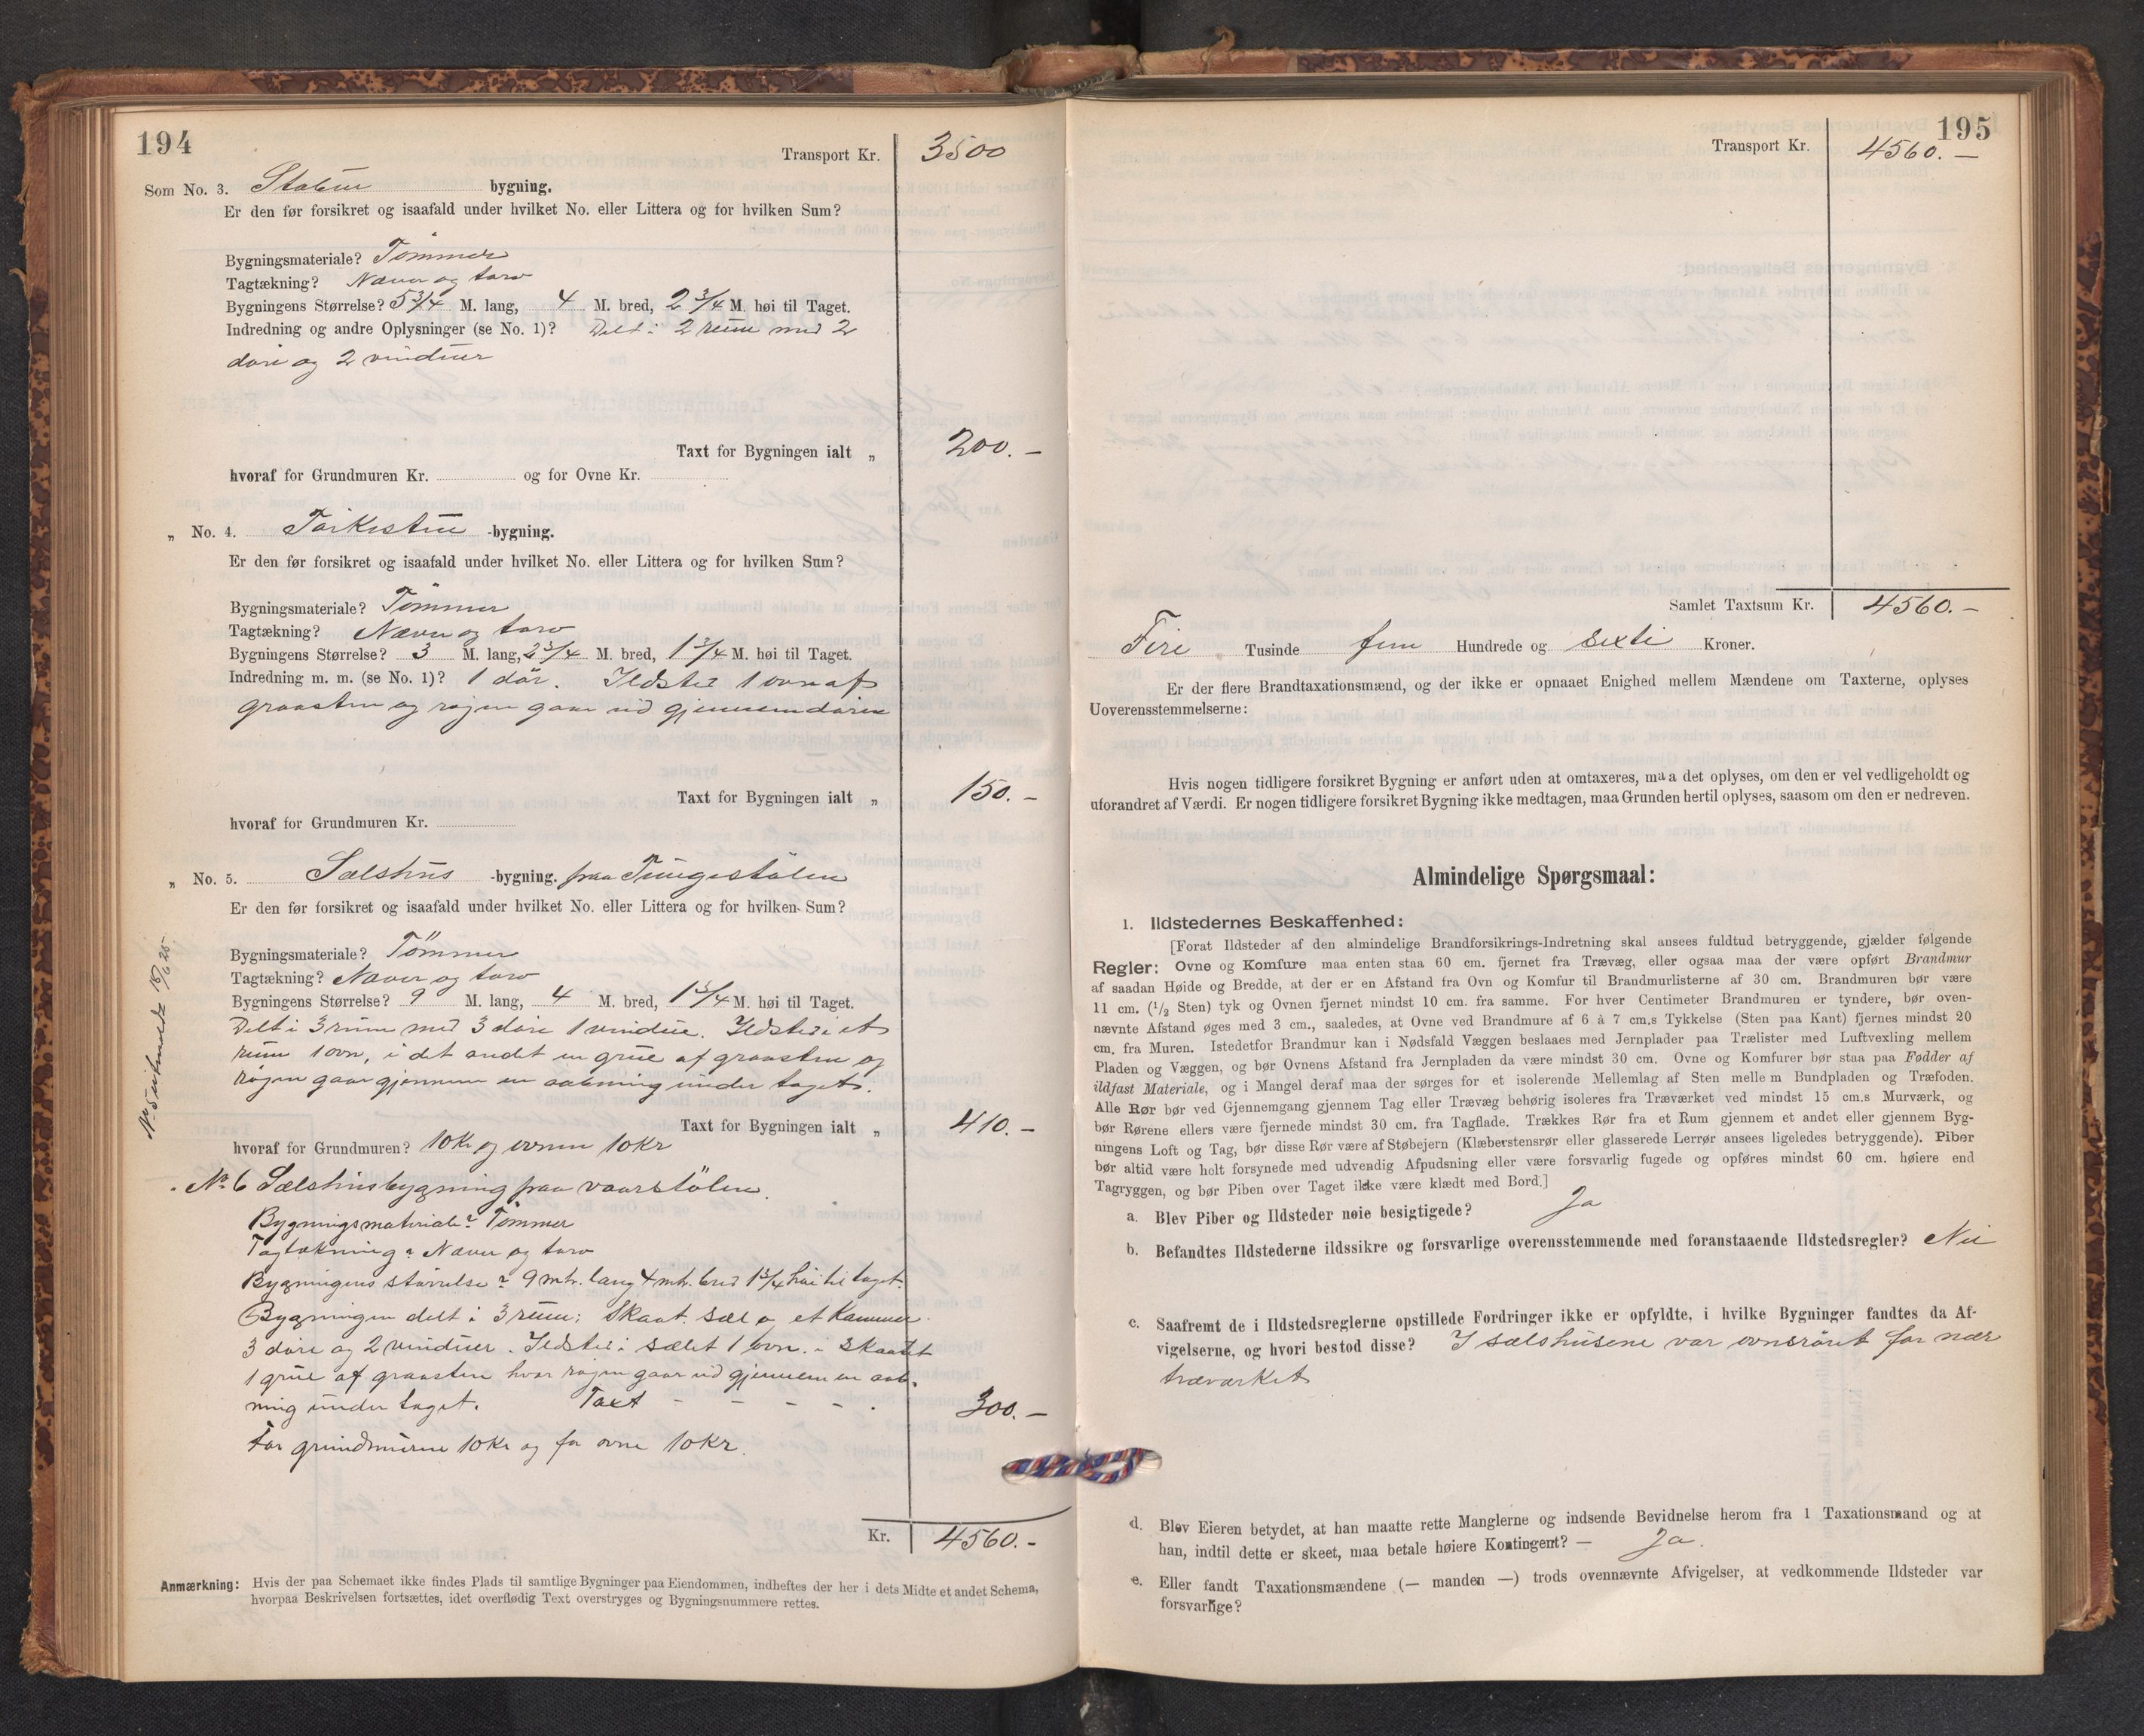 194
Transport Kr. 3500
Som No. 3. Stabur bygning.
Er den før forsikret og isaafald under hvilket No. eller Littera og for hvilken Sum?
Bygningsmateriale? Tømmer
Tagtækning? Næver og torv
Bygningens Størrelse? 5 3/4 M. lang, 4 M. bred, 2 3/4 M. høi til Taget.
Indredning og andre Oplysninger (se No. 1)? Delt i 2 rum med 2
døre og 2 vinduer
Taxt for Bygningen ialt „ 200.—
hvoraf for Grundmuren Kr. og for Ovne Kr.
„ No. 4. Tørkestue -bygning.
Er den før forsikret og isaafald under hvilket No. eller Littera og for hvilken Sum?
Bygningsmateriale? Tømmer
Tagtækning? Næver og torv
Bygningens Størrelse? 3 M. lang, 2 3/4 M. bred, 1 3/4 M. høi til Taget.
Indredning m. m. (se No. 1)? 1 dør. Ildsted 1 ovn af
graasten og røgen gaar ud gjennem døren
Taxt for Bygningen ialt „ 150.—
hvoraf for Grundmuren Kr.
„ No. 5. Sælshus -bygning. paa Tungestølen
Er den før forsikret og isaafald under hvilket No. eller Littera og for hvilken Sum?
Bygningsmateriale? Tømmer
Tagtækning? Næver og torv
Bygningens Størrelse? 9 M. lang, 4 M. bred, 1 3/4 M. høi til Taget.
Delt i 3 rum med 3 døre 1 vindue. Ildsted i et
rum 1 ovn, i det andet en grue af graasten og
røgen gaar gjennem en aabning under taget.
Taxt for Bygningen ialt „ 410.—
hvoraf for Grundmuren? 10 Kr og ovnen 10 Kr
No 6 Sælshusbygning paa vaarstølen.
Bygningsmateriale? Tømmer
Tagtækning? Næver og torv
Bygningens størrelse? 9 mtr. lang 4 mtr. bred 1 3/4 høi til taget.
Bygningen delt i 3 rum; Skaat. sæl o et Kammer.
3 døre og 2 vinduer. Ildsted i sælet 1 ovn. i Skaatet
1 grue af graasten hvor røgen gaar ud gjennem en aab-
ning under taget. Taxt - - - - . 300.—
For grundmurene 10 Kr og for ovne 10 Kr.
Kr. 4560.-
Anmærkning: Hvis der paa Schemaet ikke findes Plads til samtlige Bygninger paa Eiendommen, indheftes der her i dets Midte et andet Schema,
hvorpaa Beskrivelsen fortsættes, idet overflødig Text overstryges og Bygningsnummere rettes.
195
Transport Kr. 4560.—
Samlet Taxtsum Kr. 4560.—
Fire Tusinde fem Hundrede og sexti Kroner.
Er der flere Brandtaxationsmænd, og der ikke er opnaaet Enighed mellem Mændene om Taxterne, oplyses
Uoverensstemmelserne:
Hvis nogen tidligere forsikret Bygning er anført uden at omtaxeres, maa det oplyses, om den er vel vedligeholdt og
uforandret af Værdi. Er nogen tidligere forsikret Bygning ikke medtagen, maa Grunden hertil oplyses, saasom om den er nedreven.
Almindelige Spørgsmaal:
1. Ildstedernes Beskaffenhed:
[Forat Ildsteder af den almindelige Brandforsikrings-Indretning skal ansees fuldtud betryggende, gjælder følgende
Regler: Ovne og Komfure maa enten staa 60 cm. fjernet fra Trævæg, eller ogsaa maa der være opført Brandmur
af saadan Høide og Bredde, at der er en Afstand fra Ovn og Komfur til Brandmurlisterne af 30 cm. Brandmuren bør være
11 cm. (1/2 Sten) tyk og Ovnen fjernet mindst 10 cm. fra samme. For hver Centimeter Brandmuren er tyndere, bør oven-
nævnte Afstand øges med 3 cm., saaledes, at Ovne ved Brandmure af 6 à 7 cm.s Tykkelse (Sten paa Kant) fjernes mindst 20
cm. fra Muren. Istedetfor Brandmur kan i Nødsfald Væggen beslaaes med Jernplader paa Trælister med Luftvexling mellem
Pladen og Væggen, og bør Ovnens Afstand fra Jernpladen da være mindst 30 cm. Ovne og Komfurer bør staa paa Fødder af
ildfast Materiale, og i Mangel deraf maa der sørges for et isolerende Mellemlag af Sten mellem Bundpladen og Træfoden.
Alle Rør bør ved Gjennemgang gjennem Tag eller Trævæg behørig isoleres fra Træverket ved mindst 15 cm.s Murværk, og
bør Rørene ellers være fjernede mindst 30 cm. fra Tagflade. Trækkes Rør fra et Rum gjennem et andet eller gjennem Byg-
ningens Loft og Tag, bør disse Rør være af Støbejern (Klæberstensrør eller glasserede Lerrør ansees ligeledes betryggende). Piber
bør altid være helt forsynede med udvendig Afpudsning eller være forsvarlig fugede og opføres mindst 60 cm. høiere end
Tagryggen, og bør Piben over Taget ikke være klædt med Bord.]
a. Blev Piber og Ildsteder nøie besigtigede? Ja
b. Befandtes Ildstederne ildssikre og forsvarlige overensstemmende med foranstaaende Ildstedsregler? Nei
c. Saafremt de i Ildstedsreglerne opstillede Fordringer ikke er opfyldte, i hvilke Bygninger fandtes da Af-
vigelserne, og hvori bestod disse? I sælshusene var ovnsrøret for nær
træværket
d. Blev Eieren betydet, at han maatte rette Manglerne og indsende Bevidnelse herom fra 1 Taxationsmand og at
han, indtil dette er skeet, maa betale høiere Kontingent? — Ja.
e. Eller fandt Taxationsmændene (— manden —) trods ovennævnte Afvigelser, at vedkommende Ildsteder var
forsvarlige?